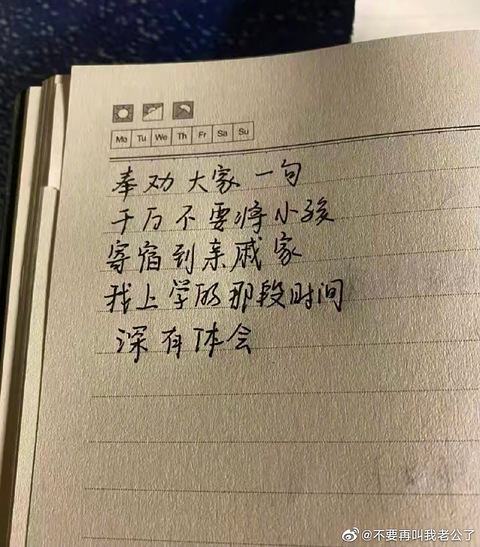 Mo Tu We Th Fr Sa Su
奉劝大家一句
千万不要将小孩
寄宿到亲戚家
我上学的那段时间
深有体会
@不要再叫我老公了